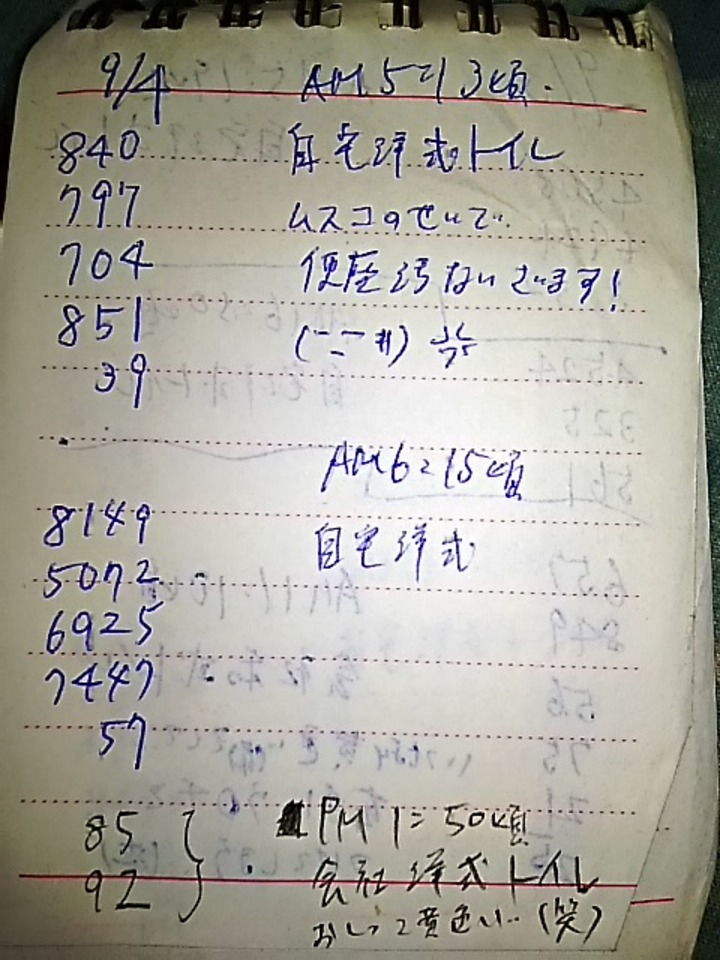 9/4 AM 5=13頃.
840 自宅洋式トイレ
797 ムスコのせいで
704 便座汚ないざいます!
851
39
AM 6=15頃
8149 自宅洋式
5072
6925
7447
57
85 PM 1=50頃
92 会社洋式トイレ
おしっこ黄色い.. (笑)